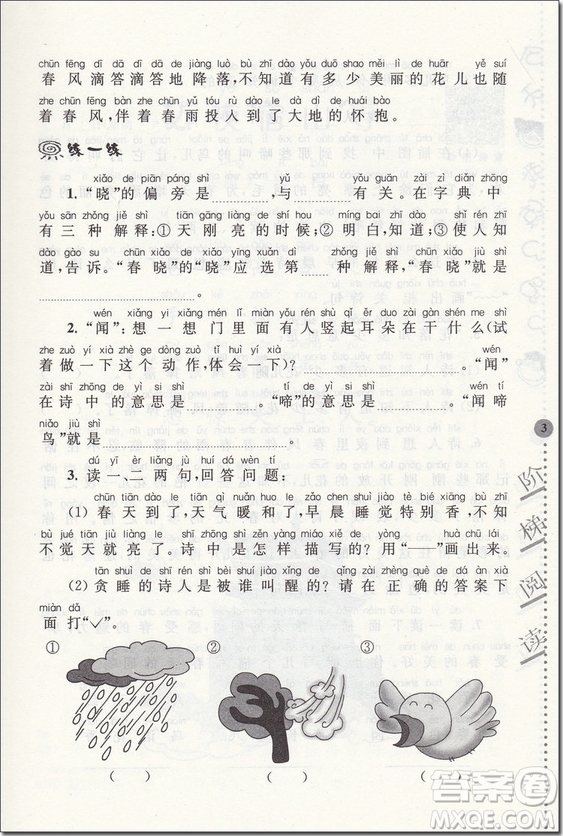 chūn fēng dī dā dī dā de jiàng luò bù zhī dào yǒu duō shǎo měi lì de huār yě suí
春风滴答滴答地降落,不知道有多少美丽的花儿也随
zhe chūn fēng bàn zhe chūn fēng tóu rù dào le dà dì de huái bào
着春风,伴着春雨投入到了大地的怀抱。
练一练
xiǎo de piān páng shì yǔ yǒu guān zài zì diǎn zhōng
1.“晓”的偏旁是________,与________有关。在字典中
yǒu sān zhǒng jiě shì tiān gāng liàng de shí hou míng bai zhī dào shǐ rén zhī
有三种解释:①天刚亮的时候;②明白,知道;③使人知
dào gào su chūn xiǎo de xiǎo yīng xuǎn dì zhǒng jiě shì chūn xiǎo jiù shì
道,告诉。“春晓”的“晓”应选第____种解释,“春晓”就是
________。
wén xiǎng yi xiǎng mén lǐ miàn yǒu rén shù qǐ ěr duo zài gàn shén me shì
2.“闻”:想一想门里面有人竖起耳朵在干什么(试
zhe zuò yí xià zhè ge dòng zuò tǐ huì yí xià wén
着做一下这个动作,体会一下)?________。“闻”
zài shī zhōng de yì si shì tí de yì si shì wén tí
在诗中的意思是________,“啼”的意思是________。“闻啼
niǎo jiù shì
鸟”就是________。
dú yī èr liǎng jù huí dá wèn tí
3.读一二两句,回答问题:
chūn tiān dào le tiān qì nuǎn huo le zǎo chen shuì jiào tè bié xiāng bù zhī
(1)春天到了,天气暖和了,早晨睡觉特别香,不知
bù jué tiān jiù liàng le shī zhōng shì zěn yàng miáo xiě de yòng huà chū lái
不觉天就亮了。诗中是怎样描写的?用“——”画出来。
tān shuì de shī rén shì bèi shuí jiào xǐng de qǐng zài zhèng què de dá àn xià
(2)贪睡的诗人是被谁叫醒的?请在正确的答案下
miàn dǎ
面打“✓”。
① ② ③
( ) ( ) ( )
3
阶梯阅读
答案圈
MXQE.COM